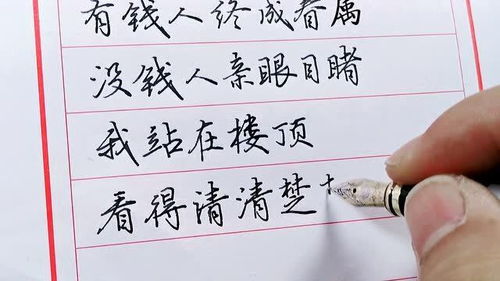 有钱人终成眷属
没钱人亲眼目睹
我站在楼顶
看得清清楚